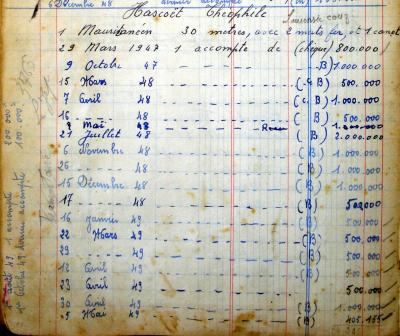 Décembre 48
Hascoët Théophile
1 Mauritanien 30 metres, avec 2 mats fer, et 1 canot
29 Mars 1947 1 acompte de (chèque) 800.000
9 Octobre 47 (B) 1.000.000
15 Mars 48 (B) 500.000
7 Avril 48 (B) 1.000.000
16 48 (B) 500.000
3 Mai 48 1.200.000
21 Juillet 48 (B) 2.000.000
6 Novembre 48 (B) 1.000.000
26 48 (B) 1.000.000
15 Décembre 48 (B) 1.000.000
17 48 (B) 500.000
16 Janvier 49 (B) 500.000
22 Mars 49 (B) 500.000
29 49 (B) 500.000
12 Avril 49 (B) 500.000
23 Avril 49 500.000
30 Avril 49 (B) 1.000.000
5 Mai 49 (B) 405.155
Août 49 1 accompte 200.000
Octobre 49 dernier accompte 100.000